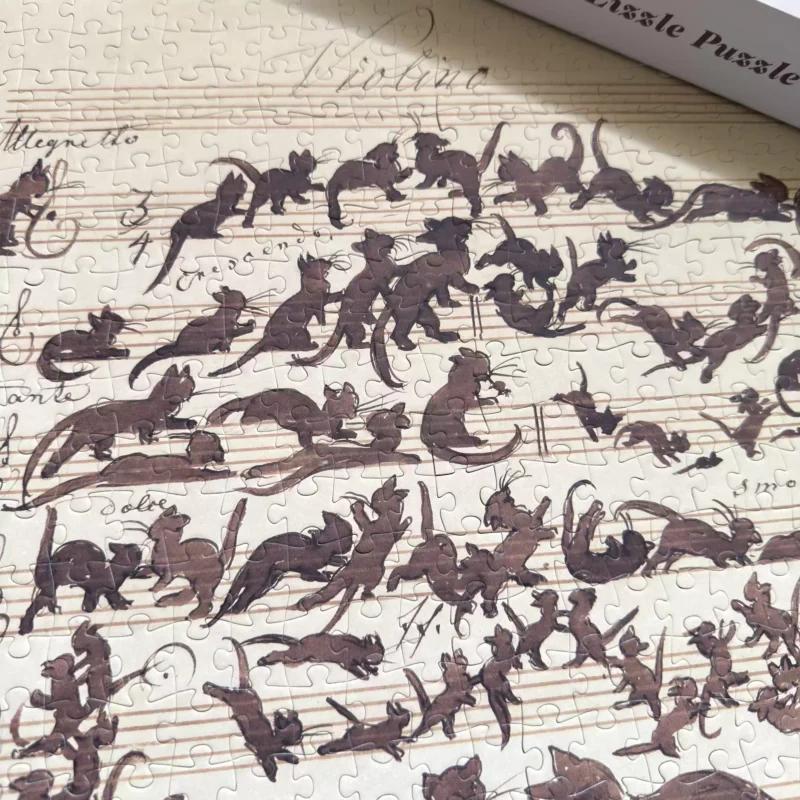 Lizzle Puzzle
Violino
Allegretto
3
4
Crescendo.
dolce
smo
ff.